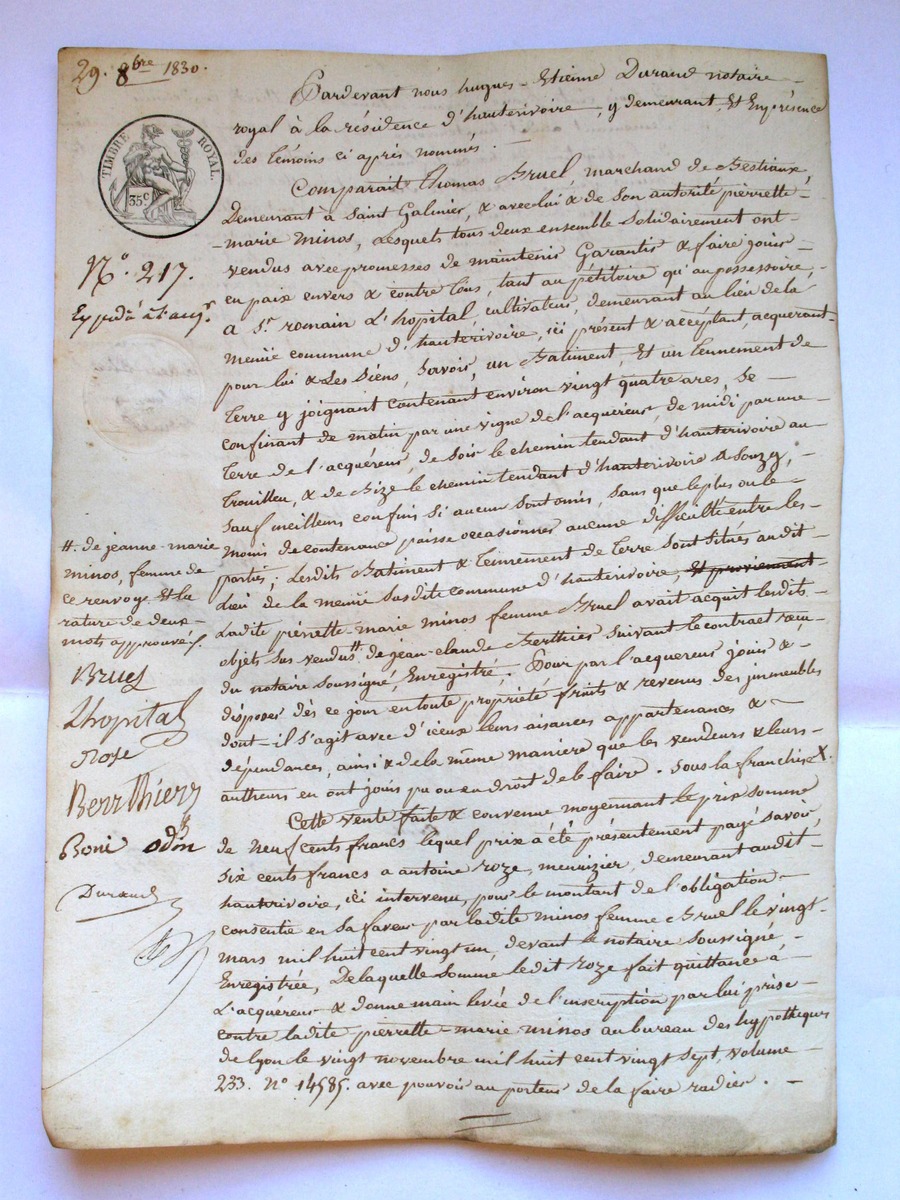 29. 8bre 1830.
TIMBRE ROYAL.
35c
N° 217.
Pardevant nous hugues-Etienne Durand notaire
royal à la résidence d'hauterivoire, y demeurant, Et En présence
des témoins ci après nommés.
Comparait Thomas Bruel marchand de Bestiaux,
Demeurant à Saint Galmier, & avec lui & de Son autorité pierrette-
-marie minos, Lesquels tous deux ensemble Solidairement ont
vendus avec promesses de maintenir Garantir & faire jouir
en paix envers & contre tous, tant au pétitoire qu'au possessoire,
a Sr. romain L'hopital cultivateur, demeurant au lieu de la
menüe commune d'hauterivoire, ici présent & acceptant, acquerant
pour lui & Les Siens, Savoir, un Batiment, Et un tennement de
terre y joignant contenant environ vingt quatre ares, Se
confinant de matin par une vigne de l'acquéreur, de midi par une
terre de l'acquéreur, de Soir le chemin tendant d'hauterivoire au
trouilleu, & de Bize le chemin tendant d'hauterivoire à Souzy,
Sauf meilleurs confins Si aucun Sont omis, Sans que le plus ou le
moins de contenance puisse occasionner aucune difficulté entre les
parties; Lesdits Batiment & tennement de terre Sont Situés audit
Lieu de la menüe Susdite commune d'hauterivoire, Et proviennent
Ladite pierrette-marie minos femme Bruel avait acquit lesdits
objets Sus vendus # de jean-claude Berthier Suivant le contract recu
du notaire soussigné, Enregistré, Pour par l'acquereur jouir &
disposer dès ce jour en toute propriété fruits & revenus des immeubles
dont-il S'agit avec d'iceux leurs aisances appartenances &
dépendances, ainsi & de la même manière que les vendeurs & leurs
autheurs en ont jouis pu ou eu droit de le faire. Sous la franchise X.
Cette vente faite & convenue moyennant le prix Somme
de neuf cents francs lequel prix a été présentement payé Savoir,
Six cents francs a antoine roze, meunizier, demeurant audit
hauterivoire, ici intervenu, pour le montant de l'obligation
consentie en Sa faveur par ladite minos femme Bruel le vingt
mars mil huit cent vingt un, devant le notaire Soussigné,
Enregistrée, De laquelle Somme ledit roze fait quittance à
L'acquéreur & donne main levée de l'inscription par lui prise
contre ladite pierrette-marie minos au bureau des hypotheques
de lyon le vingt novembre mil huit cent vingt Sept, volume
233. N° 14585. avec pouvoir au porteur de la faire radier.
#. de jeanne-marie
minos, femme de
ce renvoye Et la
rature de deux
mots approuvés.
Bruel
Lhopital
Roze
Berthier
Boni odin
Durand